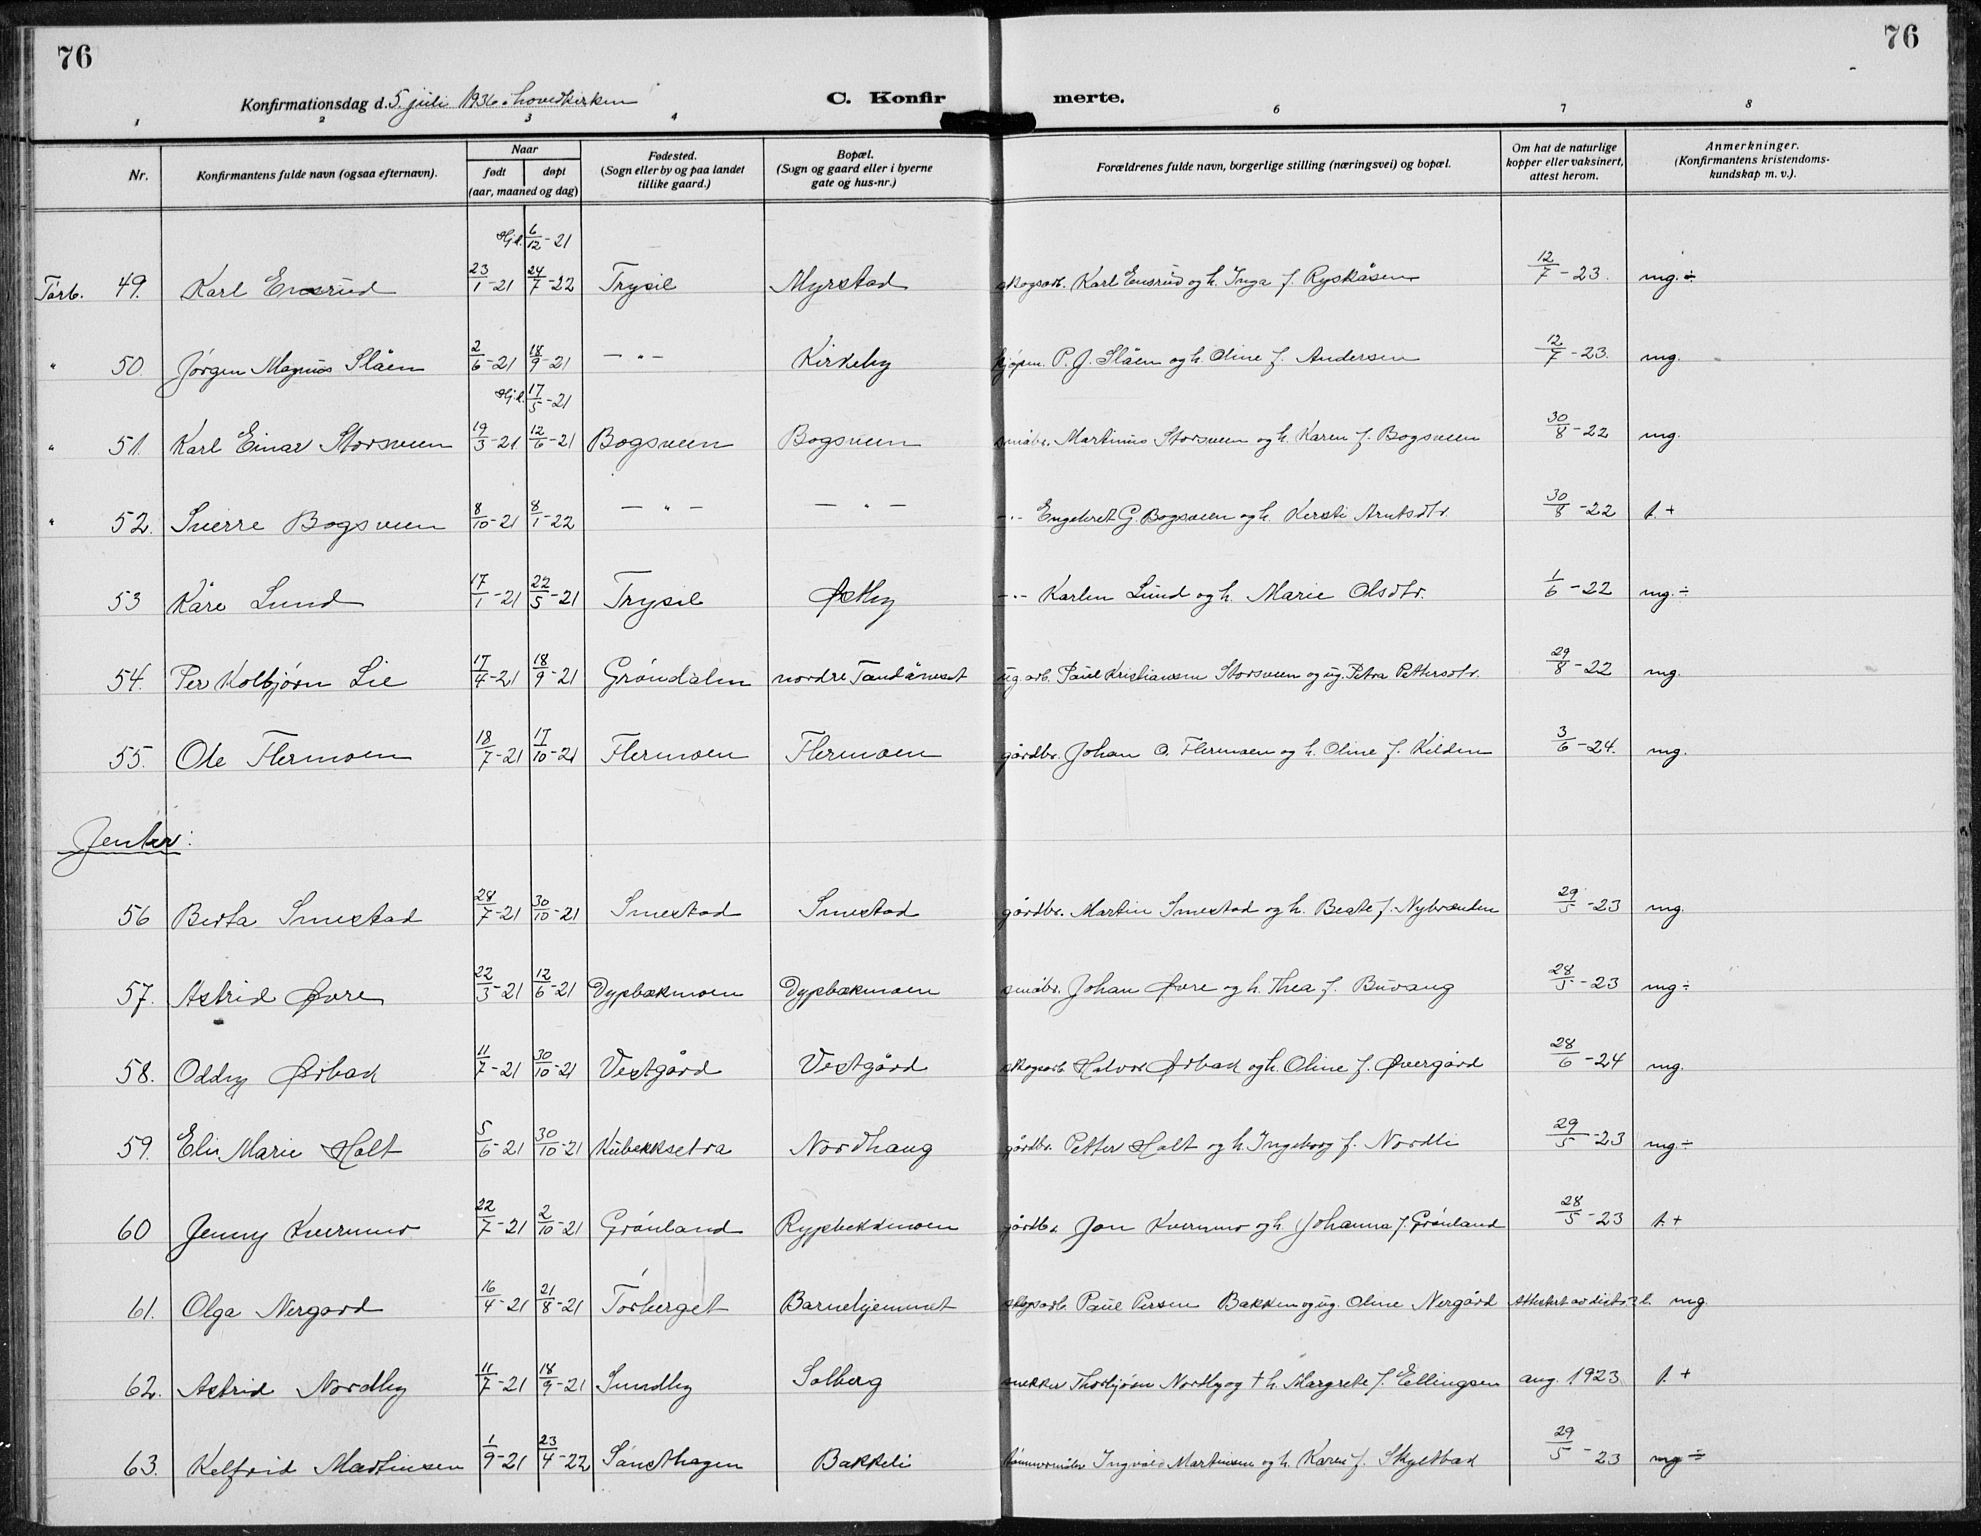 76
76
Konfirmationsdag d. 5. juli 1936 i hovedkirken
C. Konfirmerte.
1 2 3 4 6 7 8
Nr.
Konfirmantens fulde navn (ogsaa efternavn).
Naar
født
døpt
(aar, maaned og dag)
Fødested.
(Sogn eller by og paa landet
tillike gaard.)
Bopæl.
(Sogn og gaard eller i byerne
gate og hus-nr.)
Forældrenes fulde navn, borgerlige stilling (næringsvei) og bopæl.
Om hat de naturlige
kopper eller vaksinert,
attest herom.
Anmerkninger.
(Konfirmantens kristendoms-
kundskap m. v.).
Hjd. 6/12-21
Törb. 49. Karl Ensrud 23/1-21 24/7-22 Trysil Myrstad skogsarb. Karl Ensrud og h. Inga f. Ryskåsen 12/7-23. mg.÷
" 50. Jørgen Magnus Slåen 2/6-21 18/9-21 — " — Kirkeby kjøpm. P. J. Slåen og h. Oline f. Andersen 12/7-23. mg.
Hjd. 17/5-21
" 51. Karl Einar Storsveen 19/3-21 12/6-21 Bogsveen Bogsveen småbr. Martinus Storsveen og h. Karen f. Bogsveen 30/8-22 mg.
" 52. Sverre Bogsveen 8/10-21 8/1-22 — " — — " — -"- Engebret G. Bogsveen og h. Kersti Arntsdtr. 30/8-22 t.+
53 Kåre Lund 17/1-21 22/5-21 Trysil Østby -"- Karlen Lund og h. Marie Olsdtr. 1/6-22 mg.÷
54. Per Kolbjørn Lie 17/4-21 18/9-21 Grøndalen nordre Tandåneset ug. arb. Paul Kristiansen Storsveen og ug. Petra Pettersdtr. 29/8-22 mg.
55. Ole Flermoen 18/7-21 17/10-21 Flermoen Flermoen gårdbr. Johan O. Flermoen og h. Oline f. Kilden 3/6-24. mg.
Jenter:
56 Berta Smestad 28/7-21 30/10-21 Smestad Smestad gårdbr. Martin Smestad og h. Beate f. Nybrænden 29/5-23 mg.
57. Astrid Øvre 22/3-21 12/6-21 Dypbækmoen Dypbækmoen småbr. Johan Øvre og h. Thea f. Buvang 28/5-23 mg÷
58. Oddny Ørbak 11/7-21 30/10-21 Vestgård Vestgård skogsarb. Halvor Ørbak og h. Oline f. Øvergård 28/6-24 mg.
59. Elin Marie Holt 5/6-21 30/10-21 Kubekksetra Nordhaug gårdbr. Petter Holt og h. Ingeborg f. Nordli 29/5-23 mg÷
60 Jenny Kvernmo 22/7-21 2/10-21 Grønland Rypbekkmoen gårdbr. Jon Kvernmo og h. Johanna f. Grønland 28/5-23 t.+
61. Olga Nergard 16/4-21 21/8-21 Törberget Barnehjemmet skogsarb. Paul Persen Bakken og ug. Oline Nergård Attestert av distr. l. mg
62. Astrid Nordby 11/7-21 18/9-21 Sundby Solberg snekker Thorbjørn Nordby og † h. Margrete f. Ellingsen aug. 1923 t.+
63. Kelfrid Martinsen 1/9-21 23/4-22 Sansthagen Bakkeli tømmermåler Ingvald Martinsen og h. Karen f. Skyltbak 29/5-23 mg÷